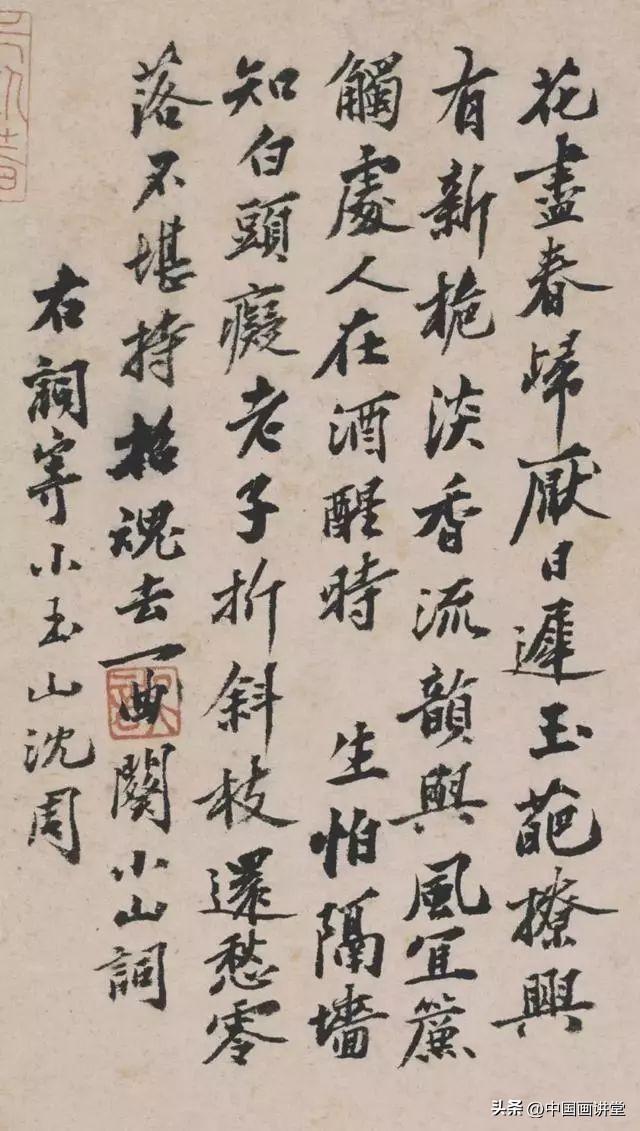 花盡春歸厭日遲玉葩撩興
有新梔淡香流韻與風宜簾
觸處人在酒醒時 生怕隔墻
知白頭癡老子折斜枝還愁零
落不堪持招魂去一曲關小山詞
右詞寄小玉山沈周
头条@中国画讲堂